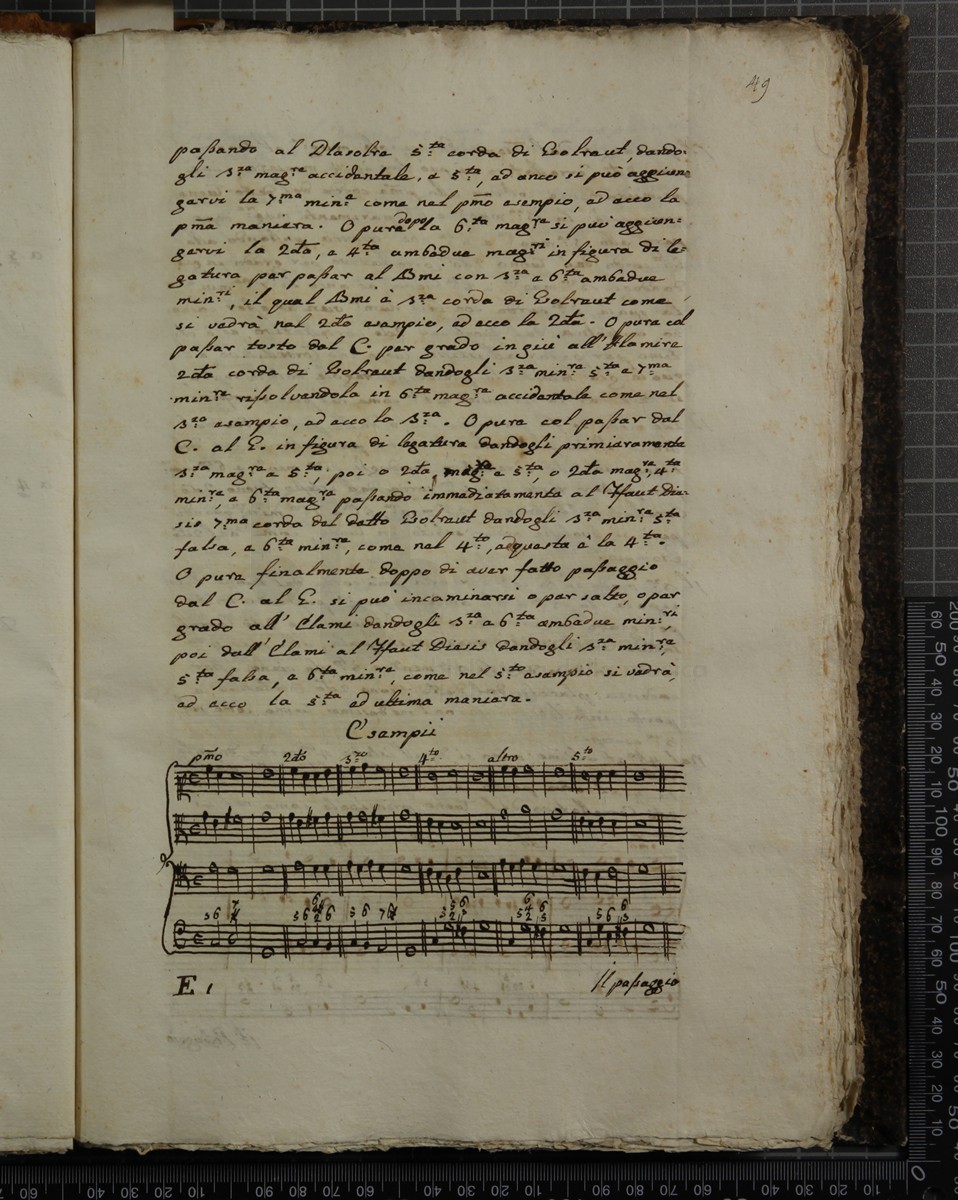 49
paſsando al Dlasolre 5.ta corda di Gsolreut, dando=
gli 3.za mag.re accidentale, e 5.ta, ed anco si può aggiun=
gervi la 7.ma min.e come nel p̄mo esempio, ed ecco la
p̄ma maniera. O pure dopo la 6.ta mag.re si può aggiun=
gervi la 2da, e 4.ta ambedue mag.ri in figura di le=
gatura per paſsar al Bmi con 3.za e 6.ta ambedue
min.ri, il qual Bmi è 3.za corda di Gsolreut come
si vedrà nel 2do esempio, ed ecco la 2da. O pure col
paſsar tosto dal C. per grado in giù all'Alamire
2da corda di Gsolreut dandogli 3.za min.re 5.ta e 7.ma
min.re riſsolvendola in 6.ta mag.re accidentale come nel
3.zo esempio, ed ecco la 3.za. O pure col paſsar dal
C. al E. in figura di legatura dandogli primieramente
3.za mag.re e 5.ta, poi o 2da, e 5.ta, o 2da mag.re, 4.ta
min.re, e 6.ta mag.re paſsando immediatamente al Ffaut Die=
sis 7.ma corda del detto Gsolreut dandogli 3.za min.re 5.ta
falsa, e 6.ta min.re, come nel 4.to, e questa è la 4.ta.
O pure finalmente doppo di aver fatto paſsaggio
dal C. al E. si può incaminarsi o per salto, o per
grado all'Elami dandogli 3.za e 6.ta ambedue min.ri,
poi dall'Elami al Ffaut Diesis dandogli 3.za min.re,
5.ta falsa, e 6.ta min.re, come nel 5.to esempio si vedrà,
ed ecco la 5.ta ed ultima maniera.
Esempii
p̄mo 2do 3.zo 4.to altro 5.to
E
Il paſsaggio